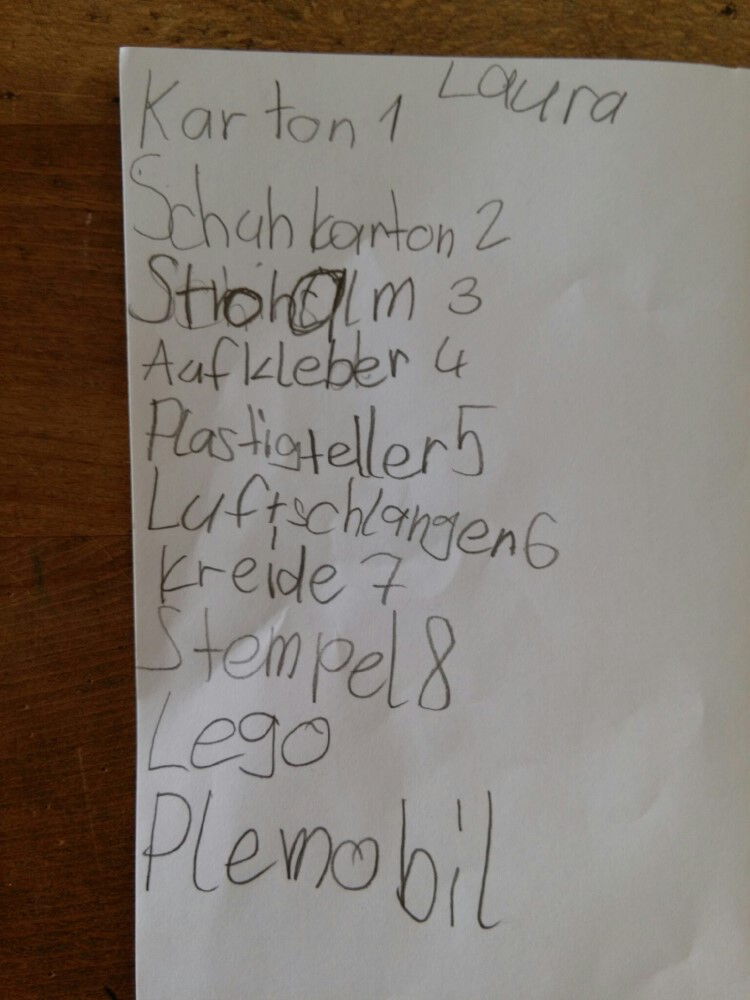 Laura
Karton 1
Schuhkarton 2
Strohalm 3
Aufkleber 4
Plastigteller 5
Luftschlangen 6
Kreide 7
Stempel 8
Lego
Plemobil